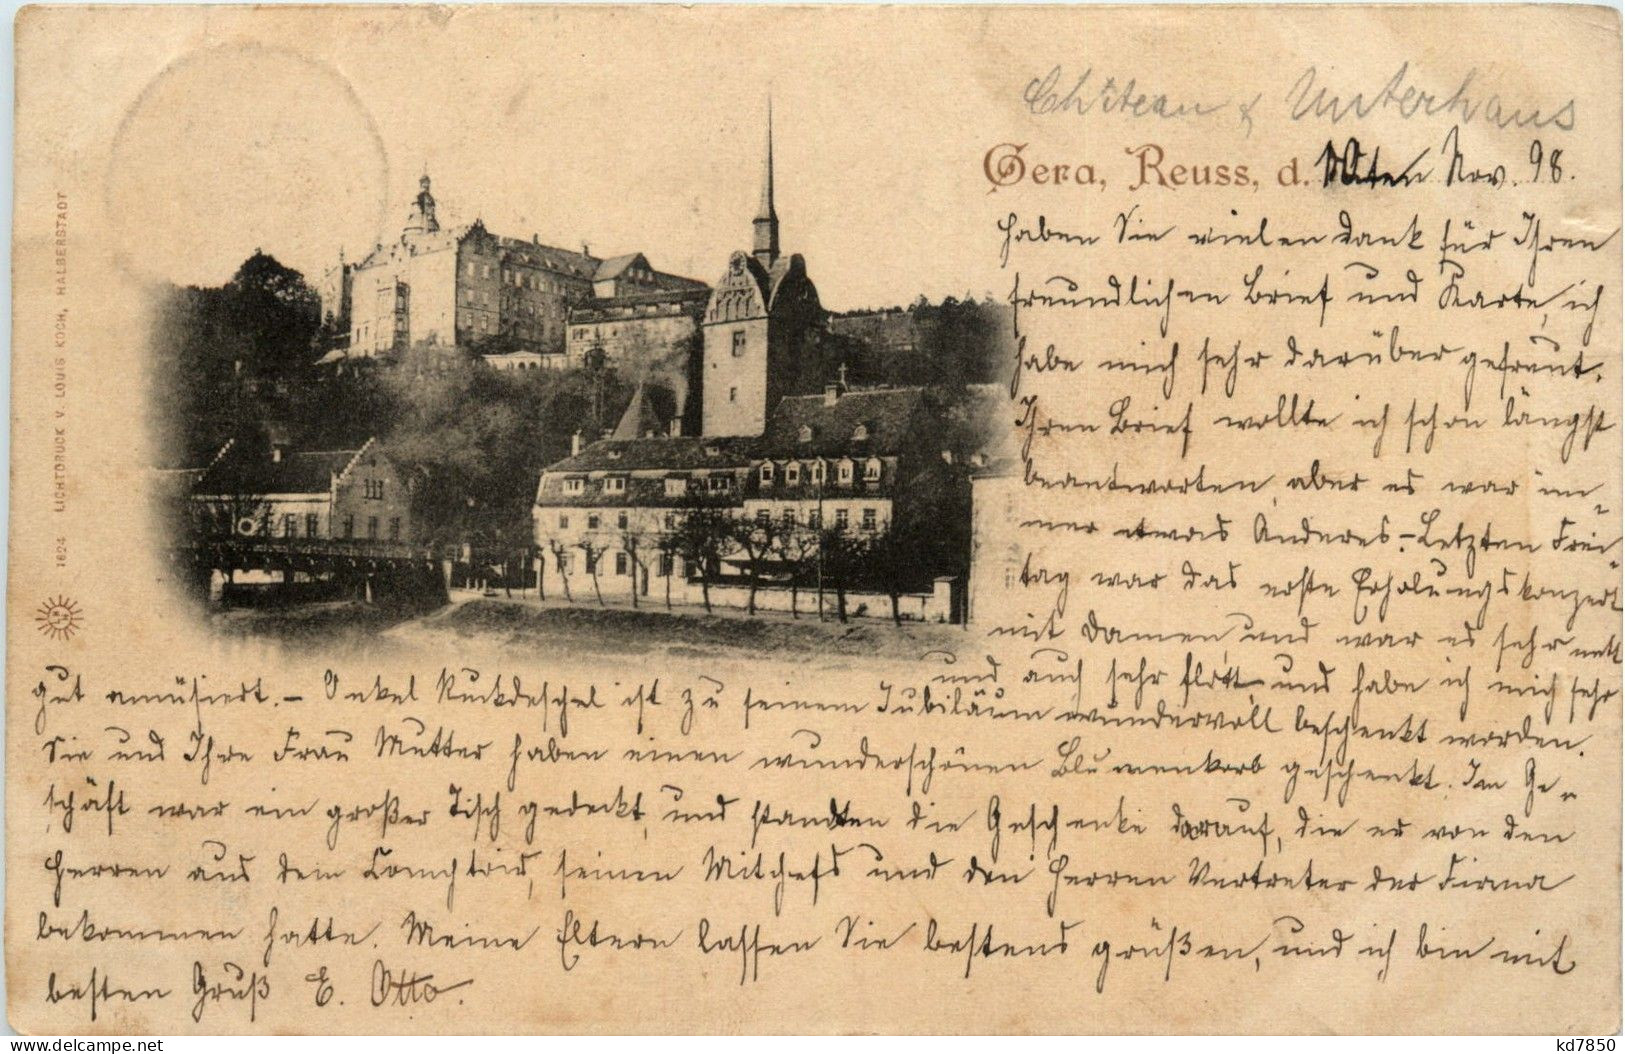 Château & Unterhaus
Gera, Reuss, d. 10ten Nov. 98.
Haben Sie vielen Dank für Ihren
freundlichen Brief und Karte, ich
habe mich sehr darüber gefreut.
Ihren Brief wollte ich schon längst
beantworten, aber es war im-
mer etwas Anderes. – Letzten Frei-
tag war das erste Erholungskonzert
mit Damen, und war es sehr nett
und auch sehr flott, und habe ich mich sehr
gut amüsiert. – Onkel Ruckdeschel ist zu seinem Jubiläum wundervoll beschenkt worden.
Sie und Ihre Frau Mutter haben einen wunderschönen Blumenkorb geschenkt. Im Ge-
schäft war ein großer Tisch gedeckt, und standen die Geschenke darauf, die er von den
Herren aus dem Comptoir, seinen Mitchefs und den Herren Vertreter der Firma
bekommen hatte. Meine Eltern lassen Sie bestens grüßen, und ich bin mit
besten Gruß E. Otto.
1624 LICHTDRUCK V. LOUIS KOCH, HALBERSTADT
www.delcampe.net
kd7850